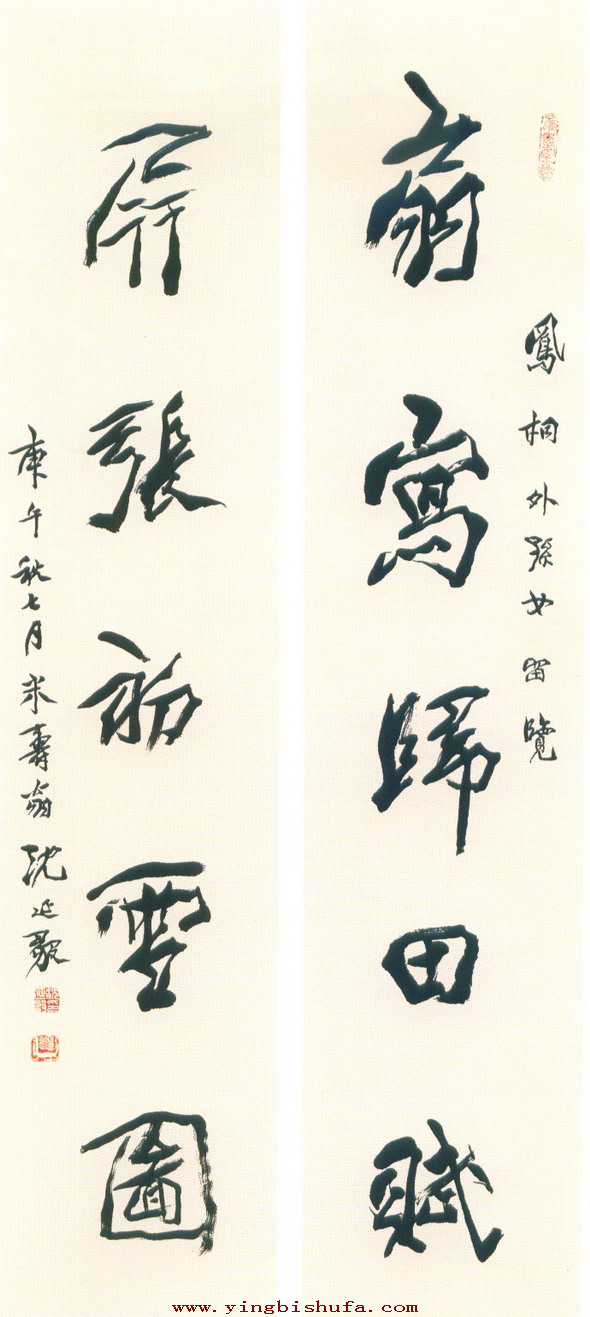 鳳桐外孫女留覽
扇寫歸田賦
屏張初雪圖
庚午秋七月米壽翁沈延毅
www.yingbishufa.com